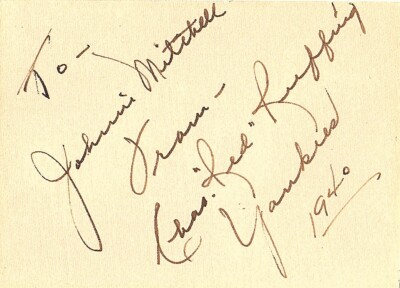 To -
Johnnie Mitchell
From -
Chas. "Red" Ruffing
Yankees
1940